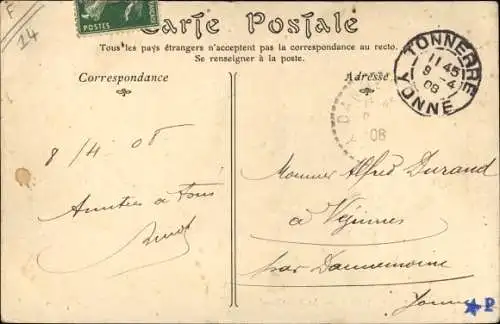 F
14
POSTES
Carte Postale
Tous les pays étrangers n'acceptent pas la correspondance au recto.
Se renseigner à la poste.
Correspondance
Adresse
TONNERRE
11 45
9 -4
08
YONNE
DA
08
Y
8/4 08
Amitiés à tous
Monsieur Alfred Durand
à Vézinnes
par Dannemoine
Yonne
P